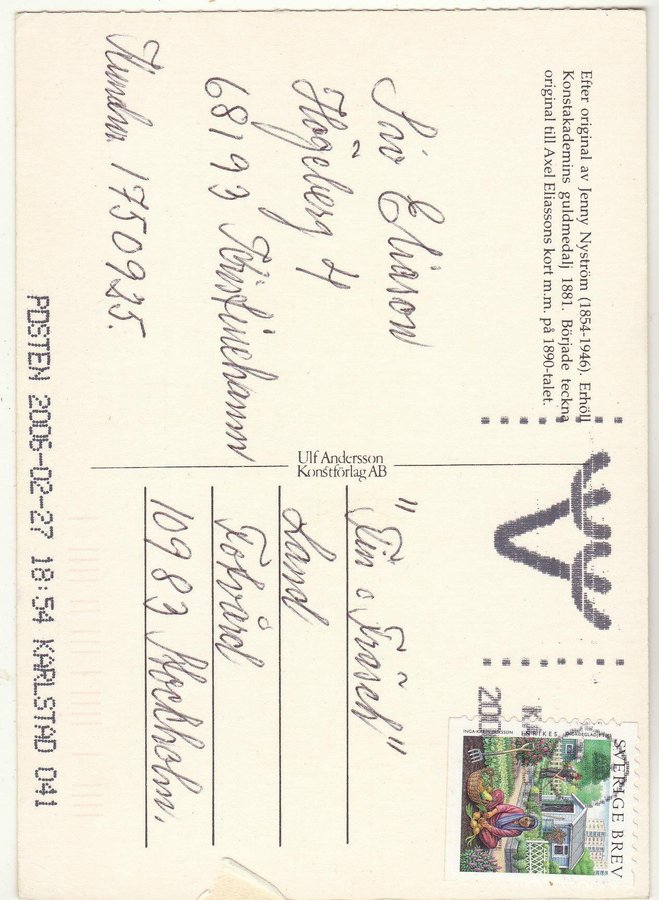 Efter original av Jenny Nyström (1854-1946). Erhöll
Konstakademins guldmedalj 1881. Började teckna
original till Axel Eliassons kort m.m. på 1890-talet.
Siv Eliason
Högeberg 4
68193 Kristinehamn
Kundnr. 1750925.
Ulf Andersson
Konstförlag AB
"Fin o Fräsch"
Land
Fotvård
10983 Stockholm.
SVERIGE BREV
INRIKES
KA
200
POSTEN 2006-02-27 18:54 KARLSTAD 041